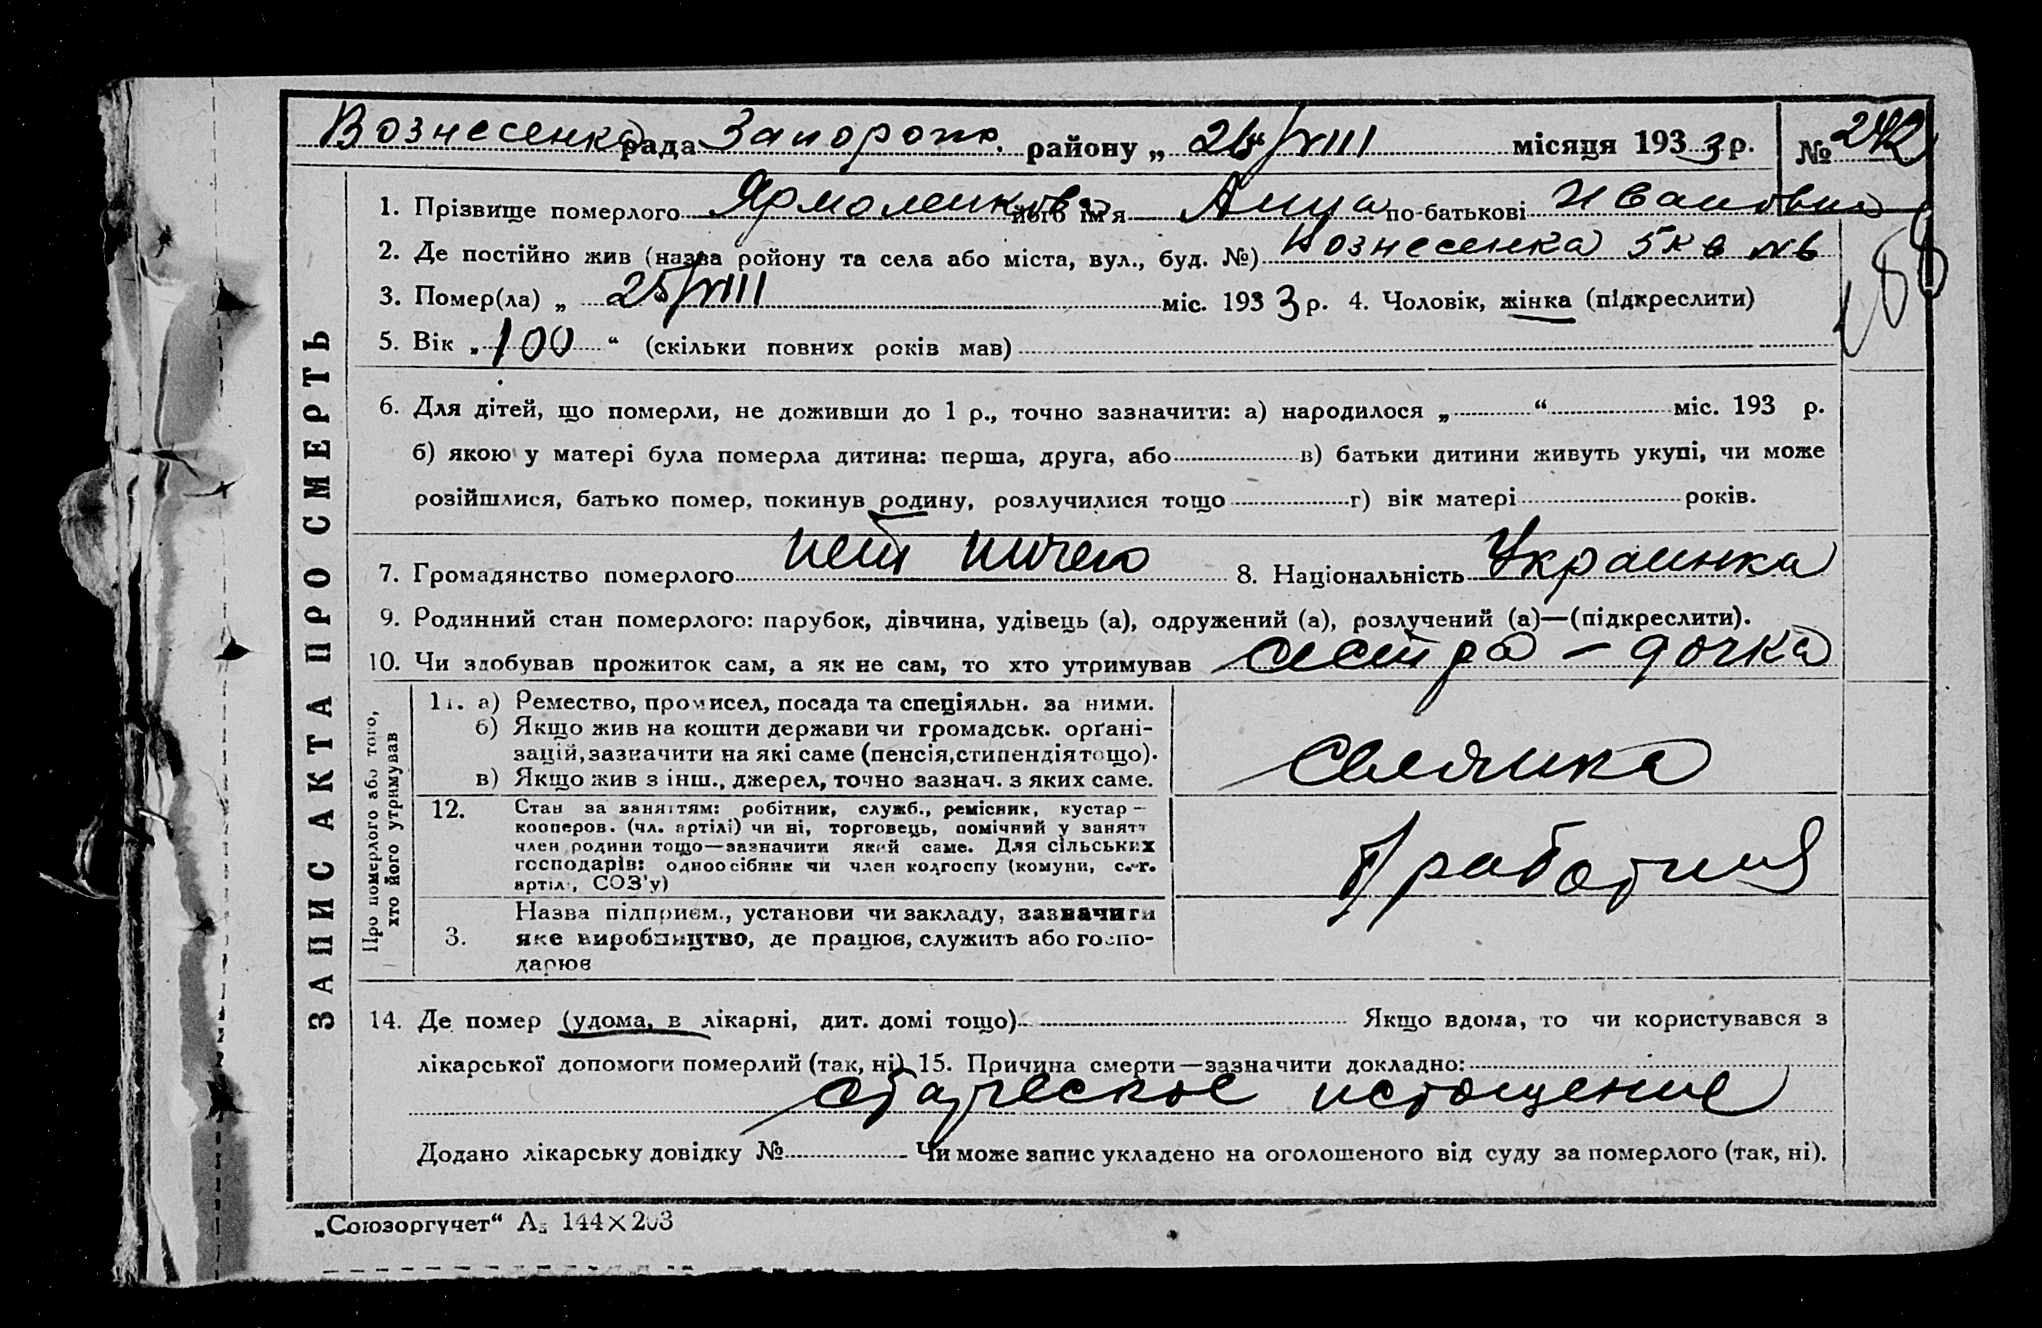 Вознесенка рада Запорож. району „ 26/VIII місяця 1933 р. № 242
1. Прізвище померлого Ярмоленкова його ім'я Анна по-батькові Ивановна
2. Де постійно жив (назва ройону та села або міста, вул., буд. №) Вознесенка 5 кв №6
188
3. Помер(ла) „ 25/VIII міс. 1933 р. 4. Чоловік, жінка (підкреслити)
5. Вік „ 100 “ (скільки повних років мав)
6. Для дітей, що померли, не доживши до 1 р., точно зазначити: а) народилося „ “ міс. 193 р.
б) якою у матері була померла дитина: перша, друга, або в) батьки дитини живуть укупі, чи може
розійшлися, батько помер, покинув родину, розлучилися тощо г) вік матері років.
7. Громадянство померлого нет ничего 8. Національність Украинка
9. Родинний стан померлого: парубок, дівчина, удівець (а), одружений (а), розлучений (а)—(підкреслити).
10. Чи здобував прожиток сам, а як не сам, то хто утримував сестра - дочка
ЗАПИС АКТА ПРО СМЕРТЬ
Про померлого або того, хто його утримував
11. а) Ремество, промисел, посада та спеціяльн. за ними.
б) Якщо жив на кошти держави чи громадськ. орґані-
зацій, зазначити на які саме (пенсія, стипендія тощо).
в) Якщо жив з інш., джерел, точно зазнач. з яких саме.
Селянка
12. Стан за заняттям: робітник, служб., ремісник, кустар —
кооперов. (чл. артілі) чи ні, торговець, помічний у занятт
член родини тощо—зазначити який саме. Для сільських
господарів: одноосібник чи член колгоспу (комуни, с.-г.
артілі, СОЗ'у)
3. Назва підприєм., установи чи закладу, зазначити
яке виробництво, де працює, служить або госпо-
дарює
14. Де помер (удома, в лікарні, дит. домі тощо) Якщо вдома, то чи користувався з
лікарської допомоги померлий (так, ні) 15. Причина смерти—зазначити докладно:
старческое истощение
Додано лікарську довідку № Чи може запис укладено на оголошеного від суду за померлого (так, ні).
„Союзоргучет“ А5 144×203